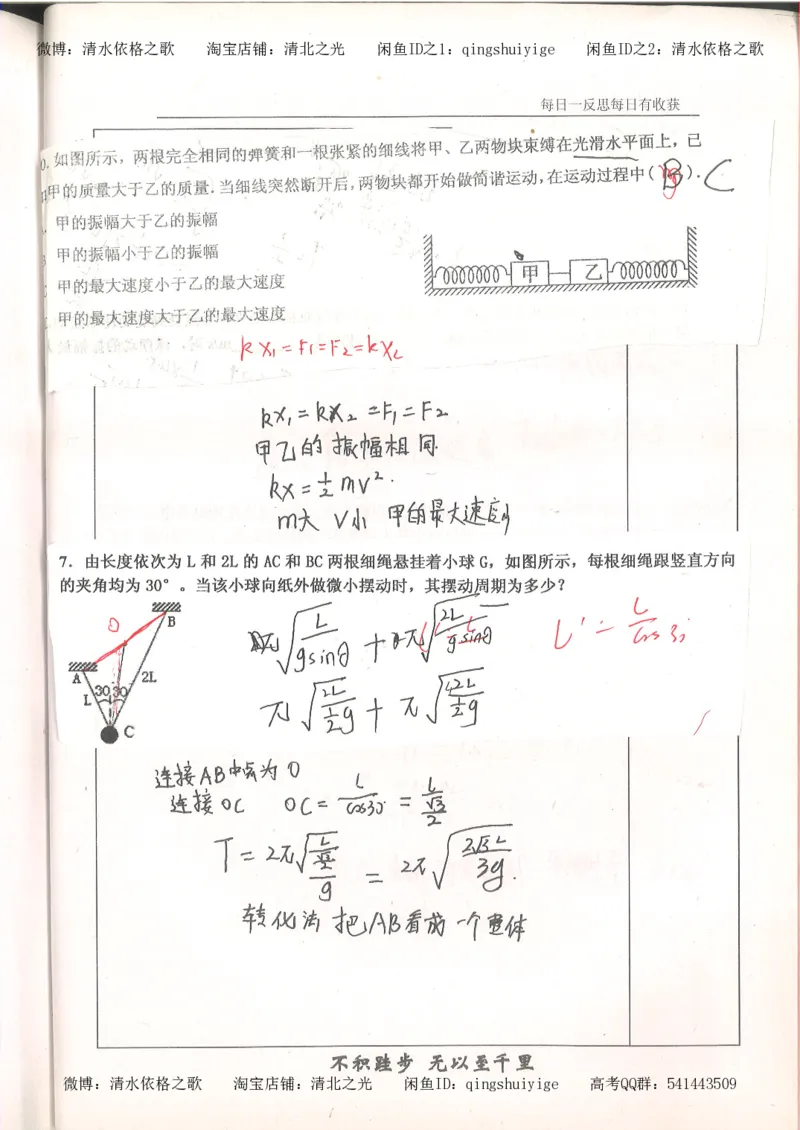 微博：清水依格之歌 淘宝店铺：清北之光 闲鱼ID之1：qingshuiyige 闲鱼ID之2：清水依格之歌
每日一反思每日有收获
0.如图所示，两根完全相同的弹簧和一根张紧的细线将甲、乙两物块束缚在光滑水平面上，已
甲的质量大于乙的质量．当细线突然断开后，两物块都开始做简谐运动，在运动过程中( B ). C
甲的振幅大于乙的振幅
甲的振幅小于乙的振幅
甲的最大速度小于乙的最大速度
甲的最大速度大于乙的最大速度
甲 乙
kx₁=F₁=F₂=kx₂
kx₁=kx₂=F₁=F₂
甲乙的振幅相同
kx=½mv².
m大 v小 甲的最大速度小
7. 由长度依次为 L 和 2L 的 AC 和 BC 两根细绳悬挂着小球 G，如图所示，每根细绳跟竖直方向
的夹角均为 30° 。当该小球向纸外做微小摆动时，其摆动周期为多少？
O
B
A
2L
30 30
L
C
L'=L/cos30
连接AB中点为O
连接OC OC=L/cos30=L/(√3/2)
T=2π√((L/(√3/2))/g)=2π√(2√3L/3g).
转化法 把AB看成一个整体
不积跬步 无以至千里
微博：清水依格之歌 淘宝店铺：清北之光 闲鱼ID：qingshuiyige 高考QQ群：541443509